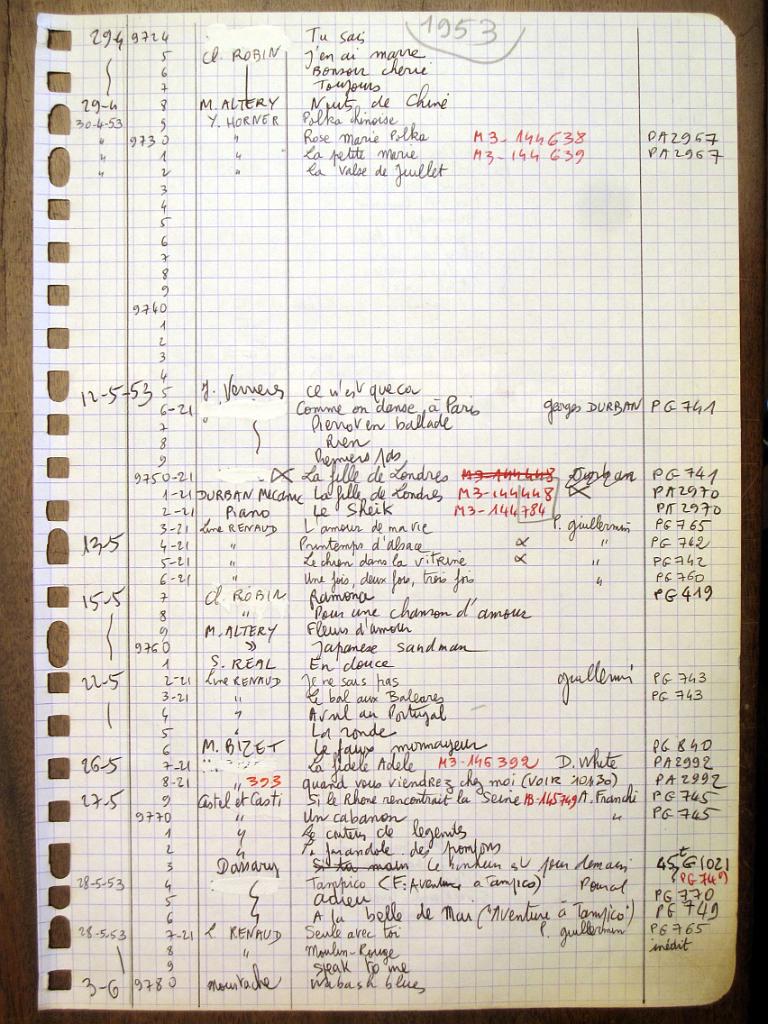 1953
29-4 9724 Tu sais
5 Cl. ROBIN J'en ai marre
6 Bonsoir cherie
7 Toujours
29-4 8 M. ALTERY Nuits de Chine
30-4-53 9 Y. HORNER Polka chinoise
" 9730 " Rose marie Polka M3-144638 PA2967
" 1 " La petite marie M3-144 639 PA2967
" 2 " La Valse de Juillet
3
4
5
6
7
8
9
9740
1
2
3
4
12-5-53 5 J. Verrieres Ce n'est que ça
6-21 Comme on danse à Paris georges DURBAN PG 741
7 " Pierrot en ballade
8 Rien
9 Premiers pas
9750-21 La fille de Londres M3-144448 Durban PG 741
1-21 DURBAN Mecanic La fille de Londres M3-144448 PA2970
2-21 Piano Le Sheik M3-144784 PA2970
3-21 Line RENAUD L'amour de ma vie P. guillermin PG 765
13-5 4-21 " Printemps d'alsace α " PG 742
5-21 " Le chien dans la vitrine α " PG 742
6-21 " Une fois, deux fois, trois fois " PG 760
15-5 7 Cl. ROBIN Ramona PG 419
8 " Pour une chanson d'amour
9 M. ALTERY Fleurs d'amour
9760 " Japanese sandman
1 S. REAL En douce
22-5 2-21 Line RENAUD Je ne sais pas guillermin PG 743
3-21 " Le bal aux Baleares PG 743
4 " Avril au Portugal
5 " La ronde
6 M. BIZET Le faux monnayeur PG 840
26-5 7-21 La fidele Adele M3-145392 D. White PA2992
8-21 " 393 quand vous viendrez chez moi (VOIR 10430) PA2992
27-5 9 Castel et Casti Si le Rhone rencontrait la Seine M3-145749 A. Franchi PG 745
9770 " Un cabanon " PG 745
1 " Le conteur de legendes
2 " La farandole des pompons
3 Dassary Si ta main Le bonheur est pour demain 45t G1021
28-5-53 4 Tampico (F: Aventure a Tampico) Pourcel PG 749
5 adieu PG 770
6 A la belle de Mai ("Aventure à Tampico") PG 749
28-5-53 7-21 L. RENAUD Seule avec toi P. guillermin PG 765
8 " Moulin-Rouge inédit
9 Speak to me
3-6 9780 Moustache Wabash blues